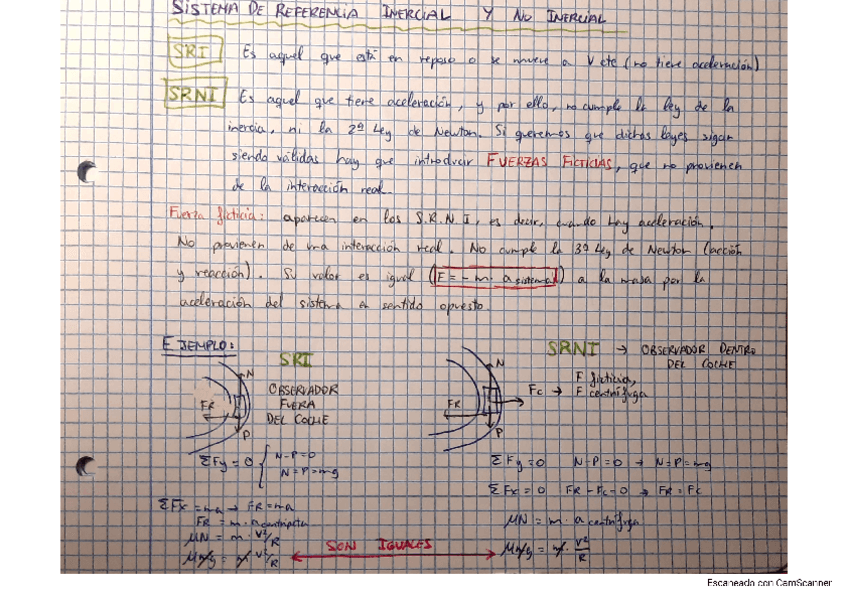 SISTEMA DE REFERENCIA INERCIAL Y NO INERCIAL
SRI Es aquel que está en reposo o se mueve a V cte (no tiene aceleración)
SRNI Es aquel que tiene aceleración, y por ello, no cumple la ley de la
inercia, ni la 2ª Ley de Newton. Si queremos que dichas leyes sigan
siendo válidas hay que introducir FUERZAS FICTICIAS, que no provienen
de la interacción real.
Fuerza ficticia: aparecen en los S.R.N.I, es decir, cuando hay aceleración.
No provienen de una interacción real. No cumple la 3ª Ley de Newton (acción
y reacción). Su valor es igual (F = - m · a sistema) a la masa por la
aceleración del sistema a sentido opuesto.
EJEMPLO:
SRI
OBSERVADOR
FUERA
DEL COCHE
N
FR
P
ΣFy = 0 { N-P=0
N=P=mg
ΣFx = ma → FR = ma
FR = m · a centrípeta
μN = m · V²/R
μmg = m · V²/R
SRNI → OBSERVADOR DENTRO
DEL COCHE
N
FR
Fc → F ficticia,
F centrífuga
P
ΣFy = 0 N-P=0 → N=P=mg
ΣFx = 0 FR - Fc = 0 → FR = Fc
μN = m · a centrífuga
μmg = m · V²/R
SON IGUALES
Escaneado con CamScanner